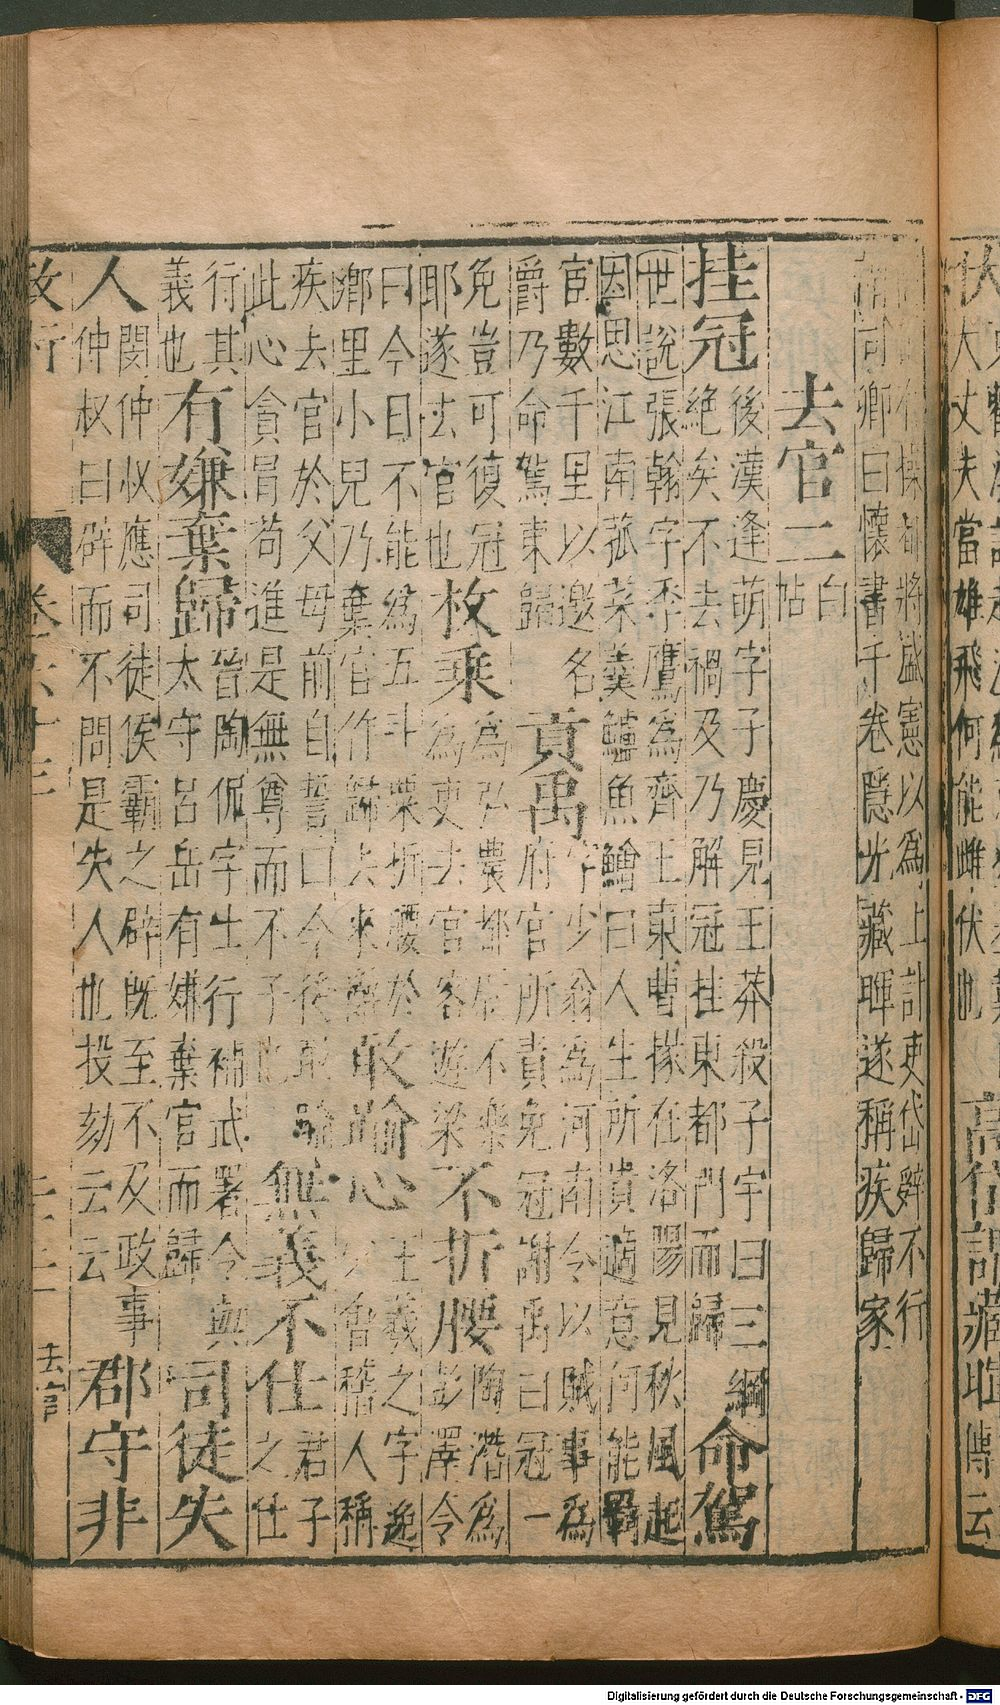 伏大丈夫當雄飛何能雌伏也
藏暉
傳云
將盛憲以為上計吏岱辭不行
可卿曰懷書千卷隱光藏暉遂稱疾歸家
去官二
白
帖
挂冠
後漢逢萌字子慶見王莽殺子宇曰三綱
絶矣不去禍及乃解冠挂東都門而歸
命駕
世說張翰字季鷹為齊王東曹掾在洛陽見秋風起
因思江南菰菜羹鱸魚鱠曰人生所貴適意何能羇
宦數千里以邀名
爵乃命駕東歸
貢禹
字少翁為河南令以賊事為
府官所責免冠謝禹曰冠一
免豈可復冠
耶遂去官也
枚乗
為弘農都尉不樂
為吏去官客遊梁
不折腰
陶潛為
彭澤令
曰今日不能為五斗粟折腰於
鄉里小兒乃棄官作歸去來辭
敢踰心
王羲之字逸
少會稽人稱
疾去官於父母前自誓曰今後敢踰
此心貪冒苟進是無尊而不子也
無義不仕
君子
之仕
行其
義也
有嫌棄歸
晉陶侃字士行補武署令與
太守呂岳有嫌棄官而歸
司徒失
人
閔仲叔應司徒侯霸之辟既至不及政事
仲叔曰辟而不問是失人也投劾云云
郡守非
去官
Digitalisierung gefördert durch die Deutsche Forschungsgemeinschaft - DFG